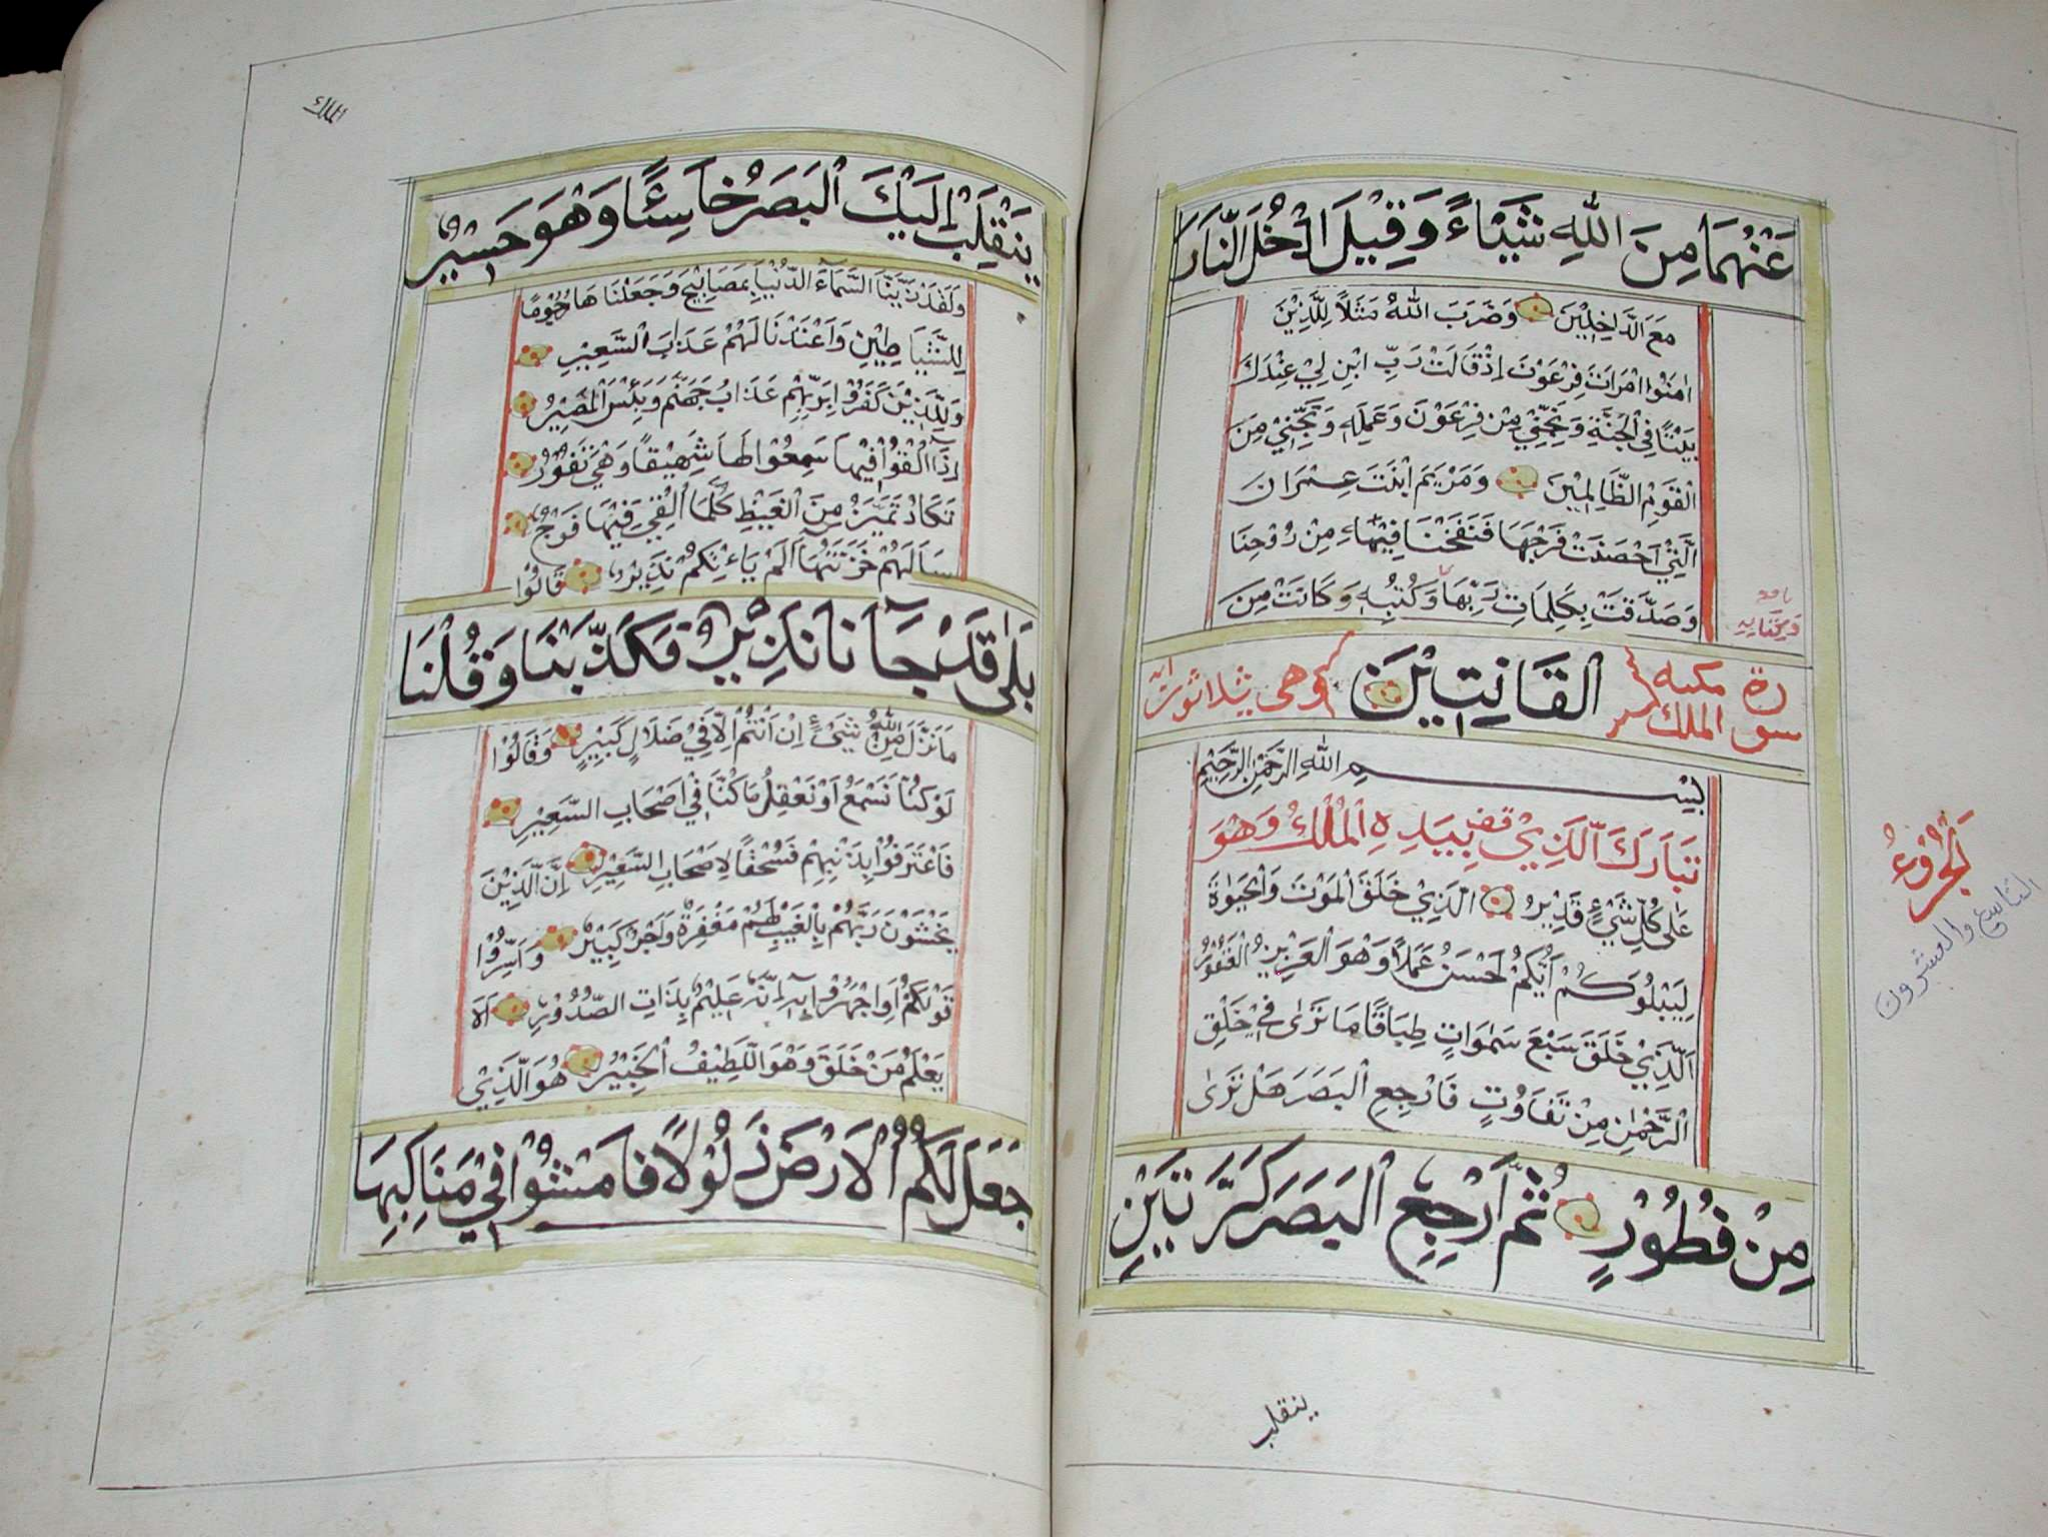 عَنْهُمَا مِنَ اللهِ شَيْاءً وَقِيْلَ ادْخُلَ النَّارَ
مَعَ الدَّاخِلِيْنَ وَضَرَبَ اللهُ مَثَلًا لِلَّذِيْنَ
اٰمَنُوا امْرَاتَ فِرْعَوْنَ اِذْ قَالَتْ رَبِّ ابْنِ لِيْ عِنْدَكَ
بَيْتًا فِي الْجَنَّةِ وَنَجِّنِيْ مِنْ فِرْعَوْنَ وَعَمَلِهٖ وَنَجِّنِيْ مِنَ
الْقَوْمِ الظَّالِمِيْنَ وَمَرْيَمَ ابْنَتَ عِمْرَانَ
الَّتِيْ اَحْصَنَتْ فَرْجَهَا فَنَفَخْنَا فِيْهَاءِ مِنْ رُوْحِنَا
وَصَدَّقَتْ بِكَلِمَاتِ رَبِّهَا وَكُتُبِهٖ وَكَانَتْ مِنَ
نافع
وكتابه
سورة الملك مكية
الْقَانِتِيْنَ
وهى ثلاثون اية
بِسْمِ اللهِ الرَّحْمٰنِ الرَّحِيْمِ
تَبَارَكَ الَّذِيْ بِيَدِهِ الْمُلْكُ وَهُوَ
عَلٰى كُلِّ شَيْءٍ قَدِيْرُ الَّذِيْ خَلَقَ الْمَوْتَ وَالْحَيٰوةَ
لِيَبْلُوَكُمْ اَيُّكُمْ اَحْسَنُ عَمَلًا وَهُوَ الْعَزِيْزُ الْغَفُوْرُ
اَلَّذِيْ خَلَقَ سَبْعَ سَمٰوَاتٍ طِبَاقًا مَا تَرٰى فِيْ خَلْقِ
الرَّحْمٰنِ مِنْ تَفَاوُتٍ فَارْجِعِ الْبَصَرَ هَلْ تَرٰى
مِنْ فُطُوْرٍ ثُمَّ ارْجِعِ الْبَصَرَ كَرَّتَيْنِ
الْجُزْوُ
التاسع والعشرون
ينقلب
الملك
يَنْقَلِبْ اِلَيْكَ الْبَصَرُ خَاسِئًا وَهُوَ حَسِيْرٌ
وَلَقَدْ زَيَّنَّا السَّمَآءَ الدُّنْيَا بِمَصَابِيْحَ وَجَعَلْنَاهَا رُجُوْمًا
لِلشَّيَاطِيْنِ وَاَعْتَدْنَا لَهُمْ عَذَابَ السَّعِيْرِ
وَلِلَّذِيْنَ كَفَرُوْا بِرَبِّهِمْ عَذَابُ جَهَنَّمَ وَبِئْسَ الْمَصِيْرُ
اِذَآ اُلْقُوْا فِيْهَا سَمِعُوْا لَهَا شَهِيْقًا وَهِيَ تَفُوْرُ
تَكَادُ تَمَيَّزُ مِنَ الْغَيْظِ كُلَّمَا اُلْقِيَ فِيْهَا فَوْجٌ
سَاَلَهُمْ خَزَنَتُهَا اَلَمْ يَاْءتِكُمْ نَذِيْرٌ قَالُوْا
بَلٰى قَدْ جَآنَا نَذِيْرٌ فَكَذَّبْنَا وَقُلْنَا
مَا نَزَّلَ اللهُ مِنْ شَيْءٍ اِنْ اَنْتُمْ اِلَّا فِيْ ضَلَالٍ كَبِيْرٍ وَقَالُوْا
لَوْ كُنَّا نَسْمَعُ اَوْ نَعْقِلُ مَا كُنَّا فِيْ اَصْحَابِ السَّعِيْرِ
فَاعْتَرَفُوْا بِذَنْبِهِمْ فَسُحْقًا لِاَصْحَابِ السَّعِيْرِ اِنَّ الَّذِيْنَ
يَخْشَوْنَ رَبَّهُمْ بِالْغَيْبِ لَهُمْ مَغْفِرَةٌ وَاَجْرٌ كَبِيْرٌ وَاَسِرُّوْا
قَوْلَكُمْ اَوِ اجْهَرُوْا بِهٖ اِنَّهٗ عَلِيْمٌ بِذَاتِ الصُّدُوْرِ اَلَا
يَعْلَمُ مَنْ خَلَقَ وَهُوَ اللَّطِيْفُ الْخَبِيْرُ هُوَ الَّذِيْ
جَعَلَ لَكُمُ الْاَرْضَ ذَلُوْلًا فَامْشُوْا فِيْ مَنَاكِبِهَا